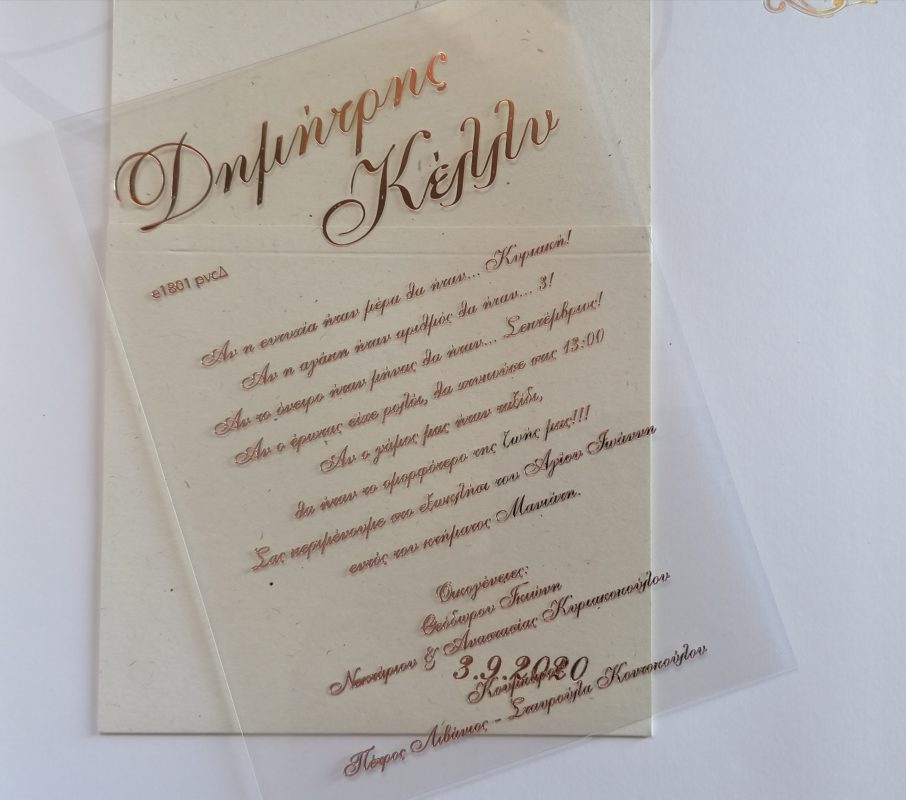 Δημήτρης
Κέλλυ
e1801 pvcΔ
Αν η ευτυχία ήταν μέρα θα ήταν... Κυριακή!
Αν η αγάπη ήταν αριθμός θα ήταν... 3!
Αν το όνειρο ήταν μήνας θα ήταν... Σεπτέμβριος!
Αν ο έρωτας είχε ρολόι, θα χτυπούσε στις 13:00
Αν ο γάμος μας ήταν ταξίδι,
θα ήταν το ομορφότερο της ζωής μας!!!
Σας περιμένουμε στο εξωκλήσι του Αγίου Ιωάννη
εντός του κτήματος Μανιάτη.
Οικογένειες:
Θεόδωρου Γκιώνη
Νεκτάριου & Αναστασίας Κυριακοπούλου
3.9.2020
Κουμπάροι:
Πέτρος Λιβάνιος - Σταυρούλα Κοντοπούλου